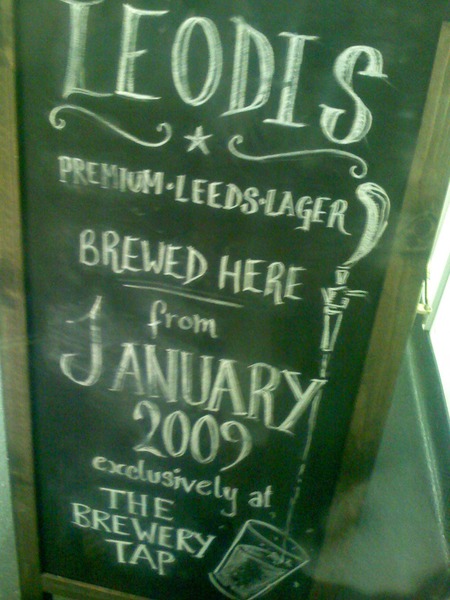 LEODIS
PREMIUM·LEEDS·LAGER
BREWED HERE
from
JANUARY
2009
exclusively at
THE
BREWERY
TAP